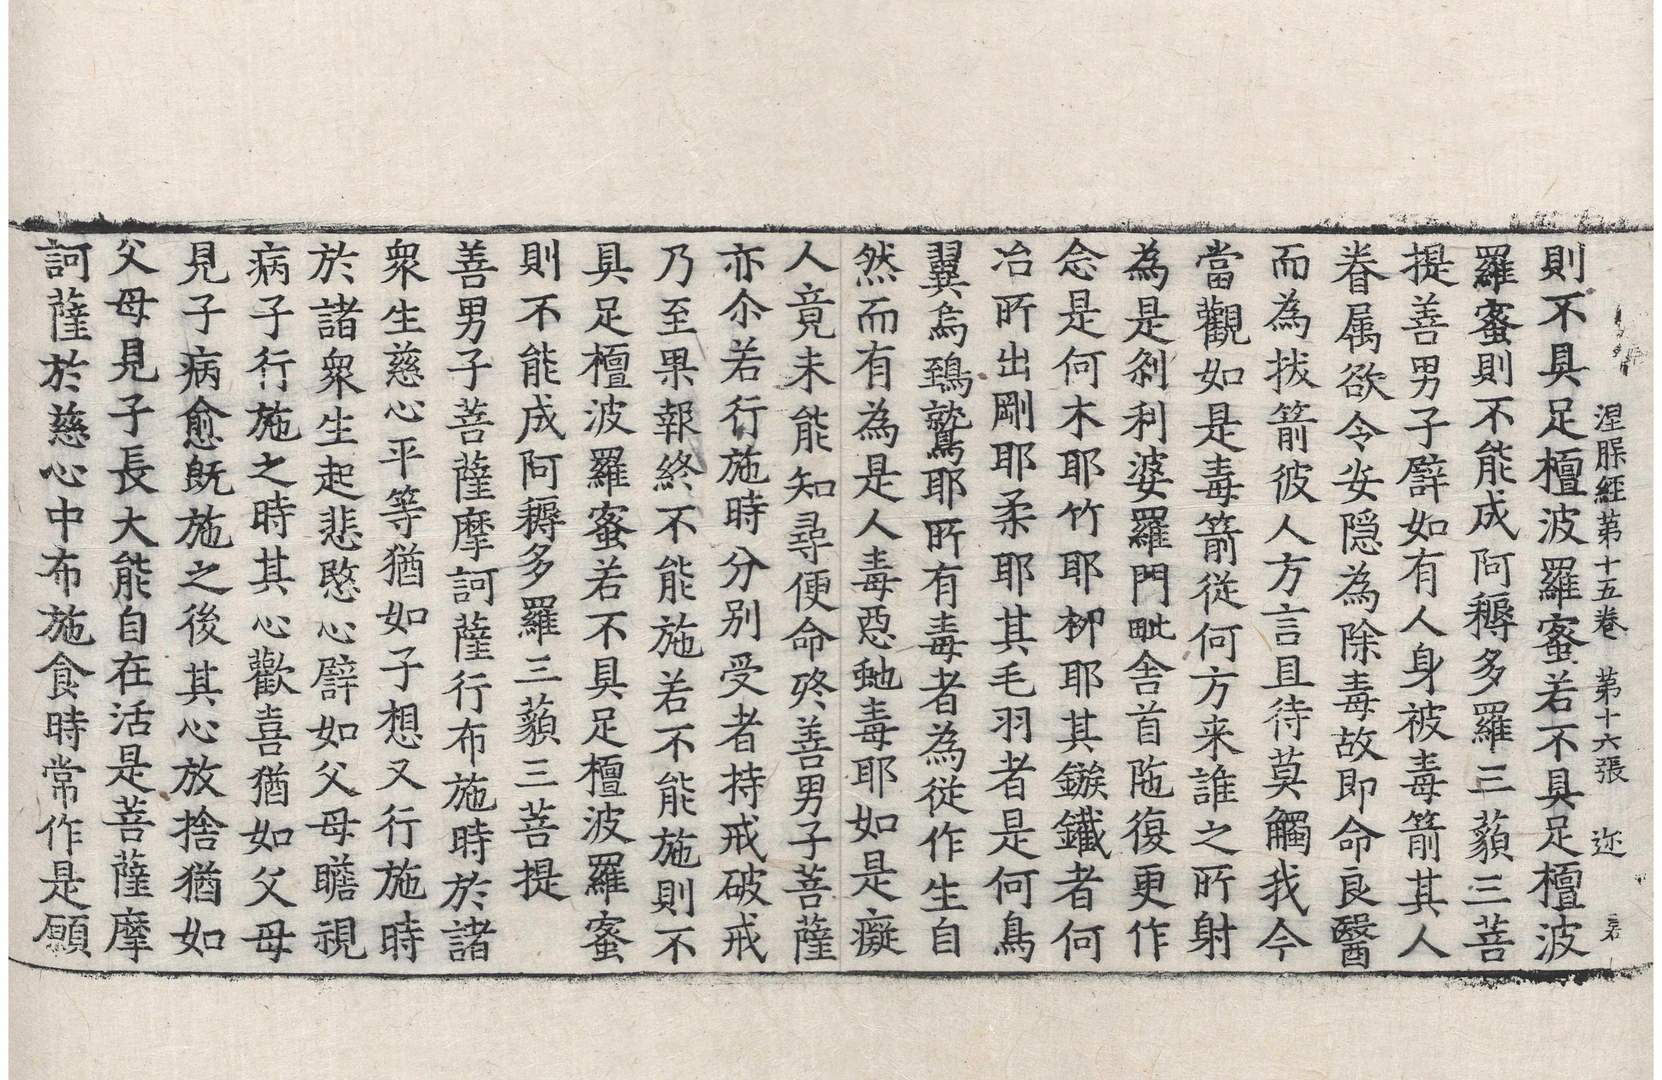 涅槃經第十五卷 第十六張 迩
則不具足檀波羅蜜若不具足檀波
羅蜜則不能成阿耨多羅三藐三菩
提善男子譬如有人身被毒箭其人
眷属欲令安隠為除毒故即命良醫
而為拔箭彼人方言且待莫觸我今
當觀如是毒箭従何方来誰之所射
為是刹利婆羅門毗舍首陁復更作
念是何木耶竹耶柳耶其鏃鐵者何
冶所出剛耶柔耶其毛羽者是何鳥
翼烏鵄鷲耶所有毒者為従作生自
然而有為是人毒惡虵毒耶如是癡
人竟未能知尋便命終善男子菩薩
亦尒若行施時分別受者持戒破戒
乃至果報終不能施若不能施則不
具足檀波羅蜜若不具足檀波羅蜜
則不能成阿耨多羅三藐三菩提
善男子菩薩摩訶薩行布施時於諸
衆生慈心平等猶如子想又行施時
於諸衆生起悲愍心譬如父母瞻視
病子行施之時其心歡喜猶如父母
見子病愈既施之後其心放捨猶如
父母見子長大能自在活是菩薩摩
訶薩於慈心中布施食時常作是願